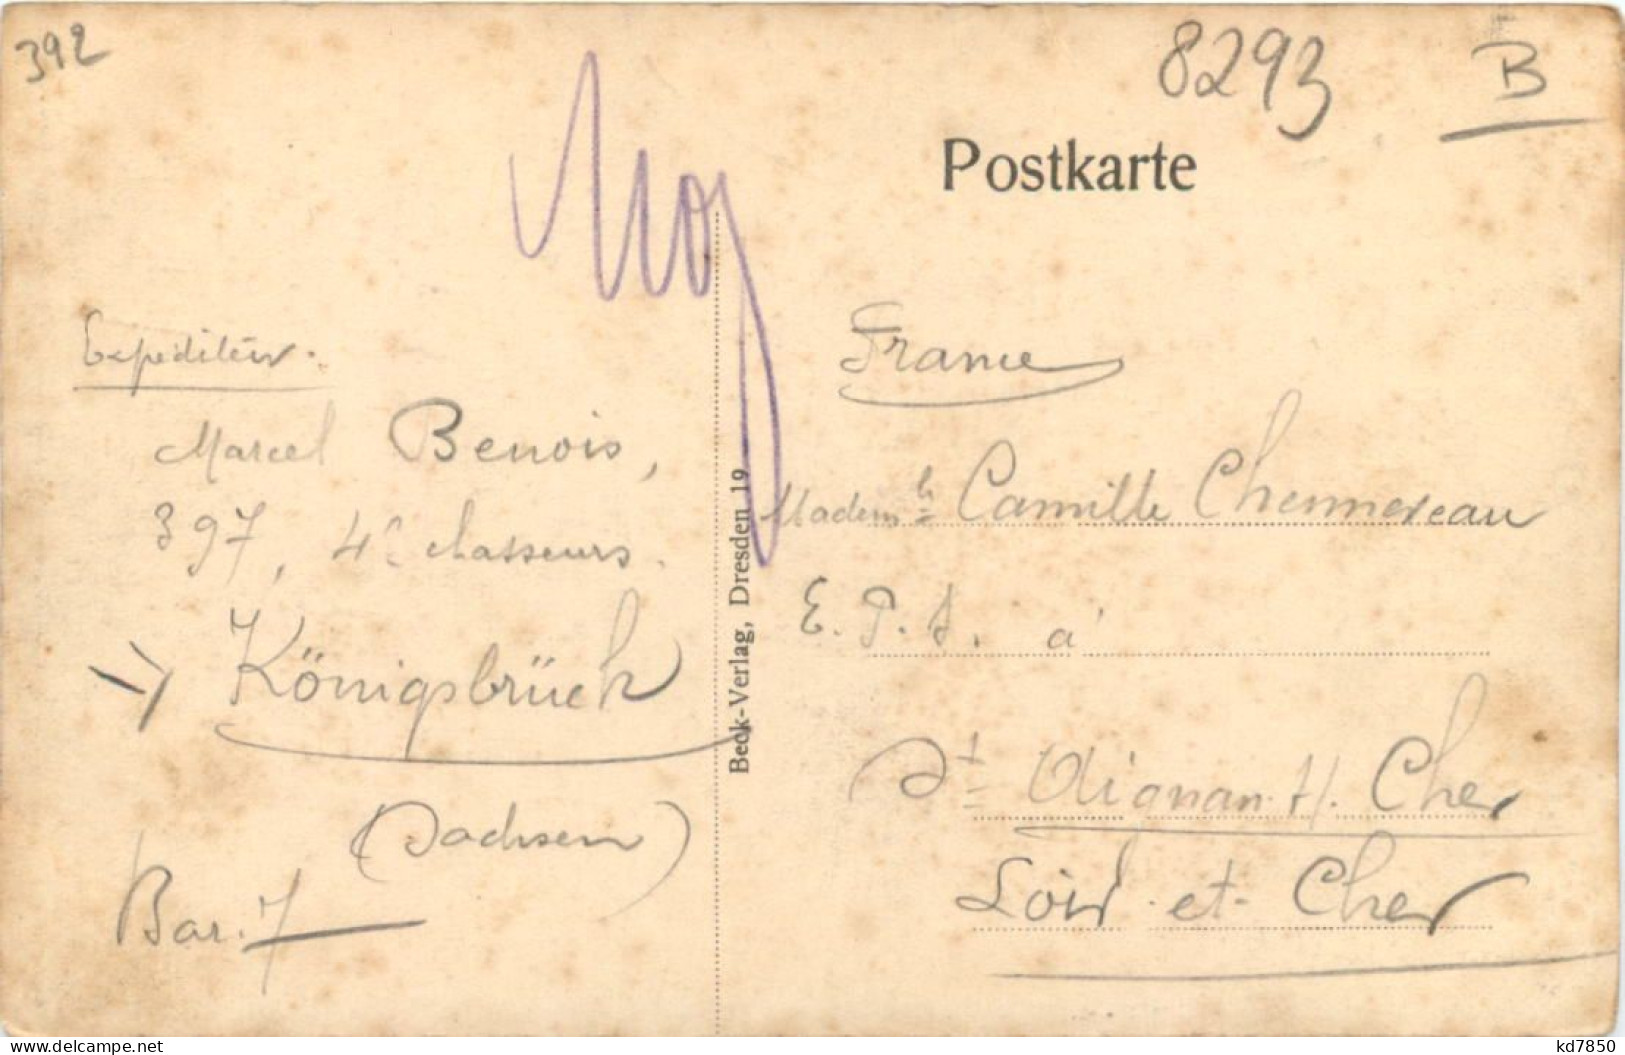 392
8293
B
Postkarte
Expéditeur.
Marcel Benois,
397, 4e chasseurs.
Königsbrück
(Sachsen)
Bar. 7
Beck-Verlag, Dresden 19
France
Madem lle Camille Chennereau
E. P. S. à
St Aignan s/. Cher
Loir-et-Cher
www.delcampe.net
kd7850